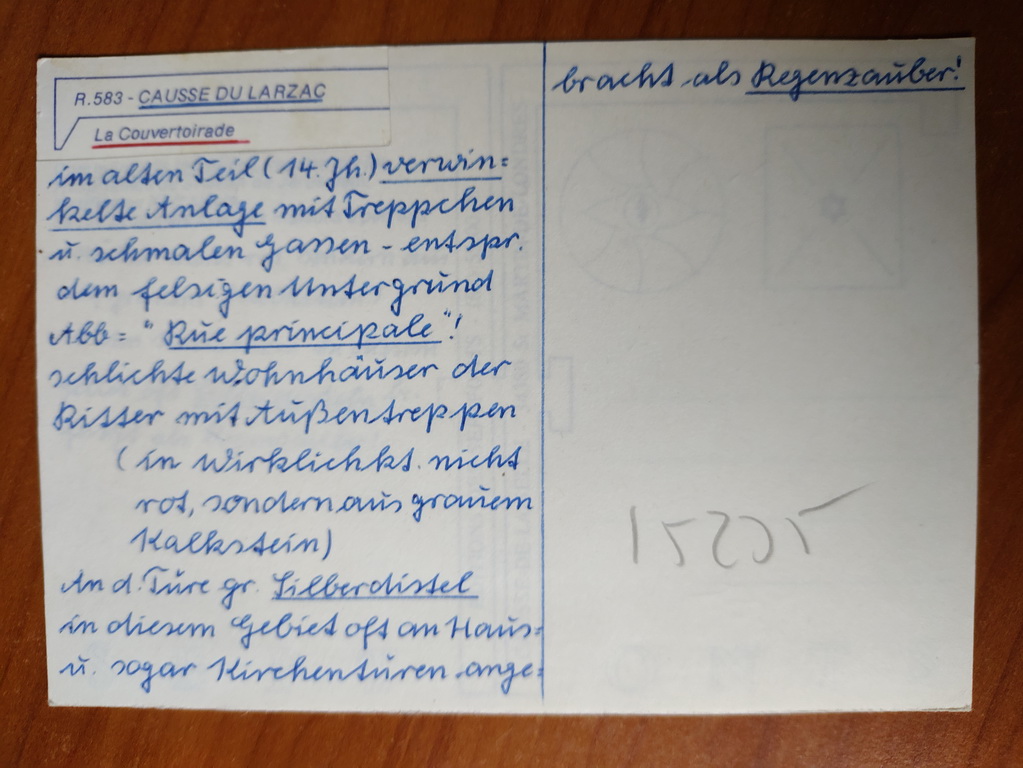 R.583 - CAUSSE DU LARZAC
La Couvertoirade
im alten Teil (14. Jh.) verwin=
kelte Anlage mit Treppchen
u. schmalen Gassen - entspr.
dem felsigen Untergrund
Abb = "Rue principale"!
schlichte Wohnhäuser der
Ritter mit Außentreppen
(in Wirklichkt. nicht
rot, sondern aus grauem
Kalkstein)
An d. Türe gr. Silberdistel
in diesem Gebiet oft an Haus=
u. sogar Kirchentüren ange=
bracht als Regenzauber!